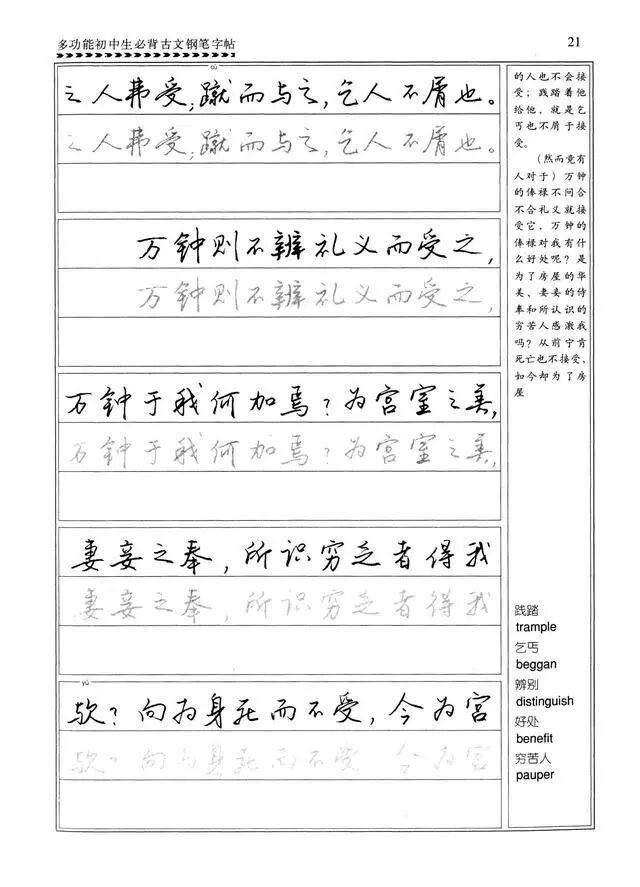 多功能初中生必背古文钢笔字帖
21
之人弗受；蹴而与之，乞人不屑也。
之人弗受；蹴而与之，乞人不屑也。
万钟则不辨礼义而受之，
万钟则不辨礼义而受之，
万钟于我何加焉？为宫室之美，
万钟于我何加焉？为宫室之美，
妻妾之奉，所识穷乏者得我
妻妾之奉，所识穷乏者得我
欤？向为身死而不受，今为宫
欤？向为身死而不受 今为宫
的人也不会接
受；践踏着他
给他，就是乞
丐也不屑于接
受。
（然而竟有
人对于）万钟
的俸禄不问合
不合礼义就接
受它，万钟的
俸禄对我有什
么好处呢？是
为了房屋的华
美、妻妾的侍
奉和所认识的
穷苦人感激我
吗？从前宁肯
死亡也不接受，
如今却为了房
屋
践踏
trample
乞丐
beggan
辨别
distinguish
好处
benefit
穷苦人
pauper